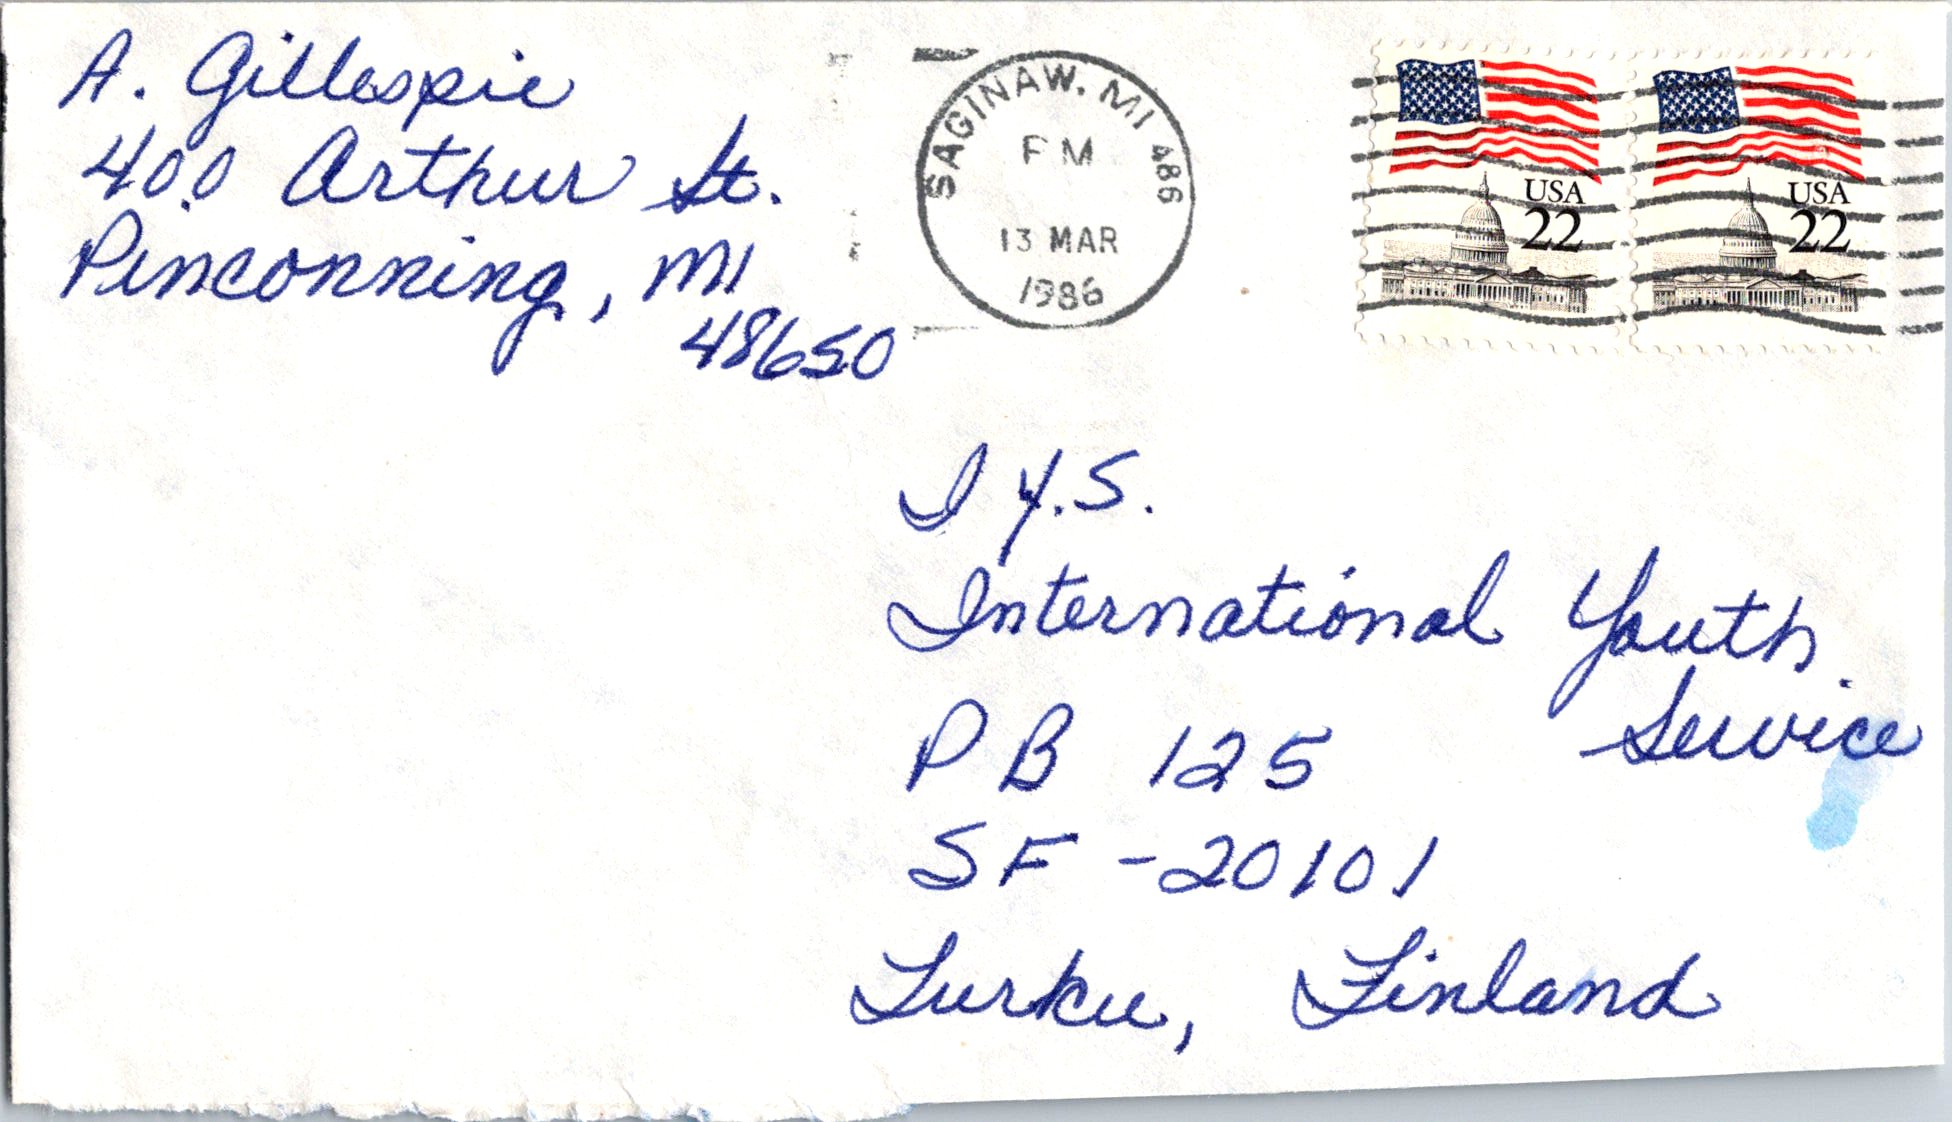 A. Gillespie
400 Arthur St.
Pinconning, MI
48650
SAGINAW, MI 486
PM
13 MAR
1986
USA
22
USA
22
I Y.S.
International Youth
Service
PB 125
SF-20101
Turku, Finland